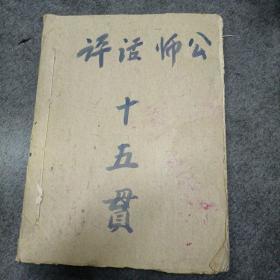 评话师公
十五贯